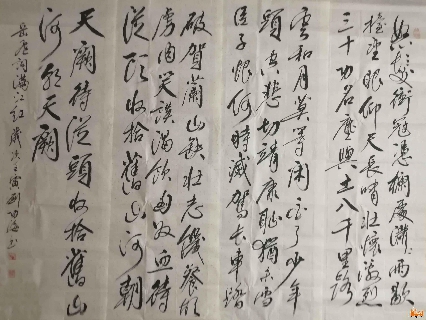 怒髮衝冠憑欄處瀟瀟雨歇
抬望眼仰天長嘯壯懷激烈
三十功名塵與土八千里路
雲和月莫等閑白了少年
頭空悲切靖康恥猶未雪
臣子恨何時滅駕長車踏
破賀蘭山缺壯志饑餐胡
虜肉笑談渴飲匈奴血待
從頭收拾舊山河朝
天闕待從頭收拾舊山
河朝天闕
岳飛詞滿江紅 歲次壬寅 書